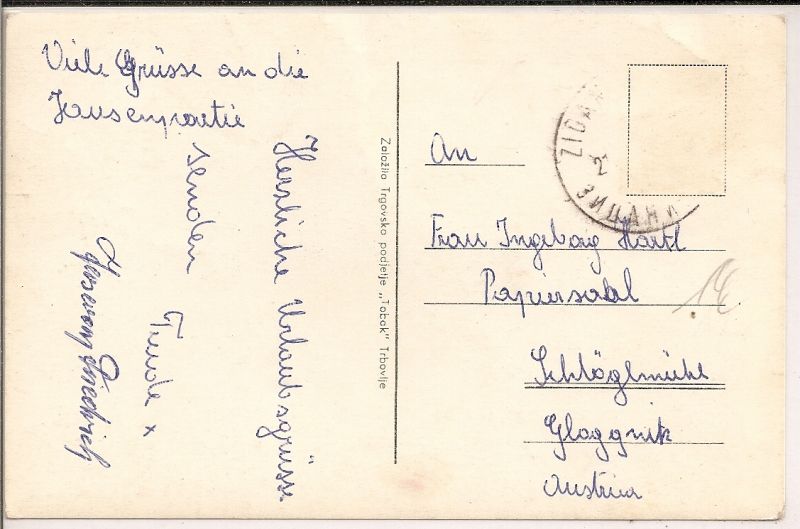 Viele Grüsse an die
Jausenpartie
Herzliche Urlaubsgrüsse
senden
Friedrich
Založila Trgovsko podjetje „Tobak" Trbovlje
ZIDA
2
An
Frau Ingeborg Hartl
Papiersaal
Schlöglmühl
Gloggnitz
Austria